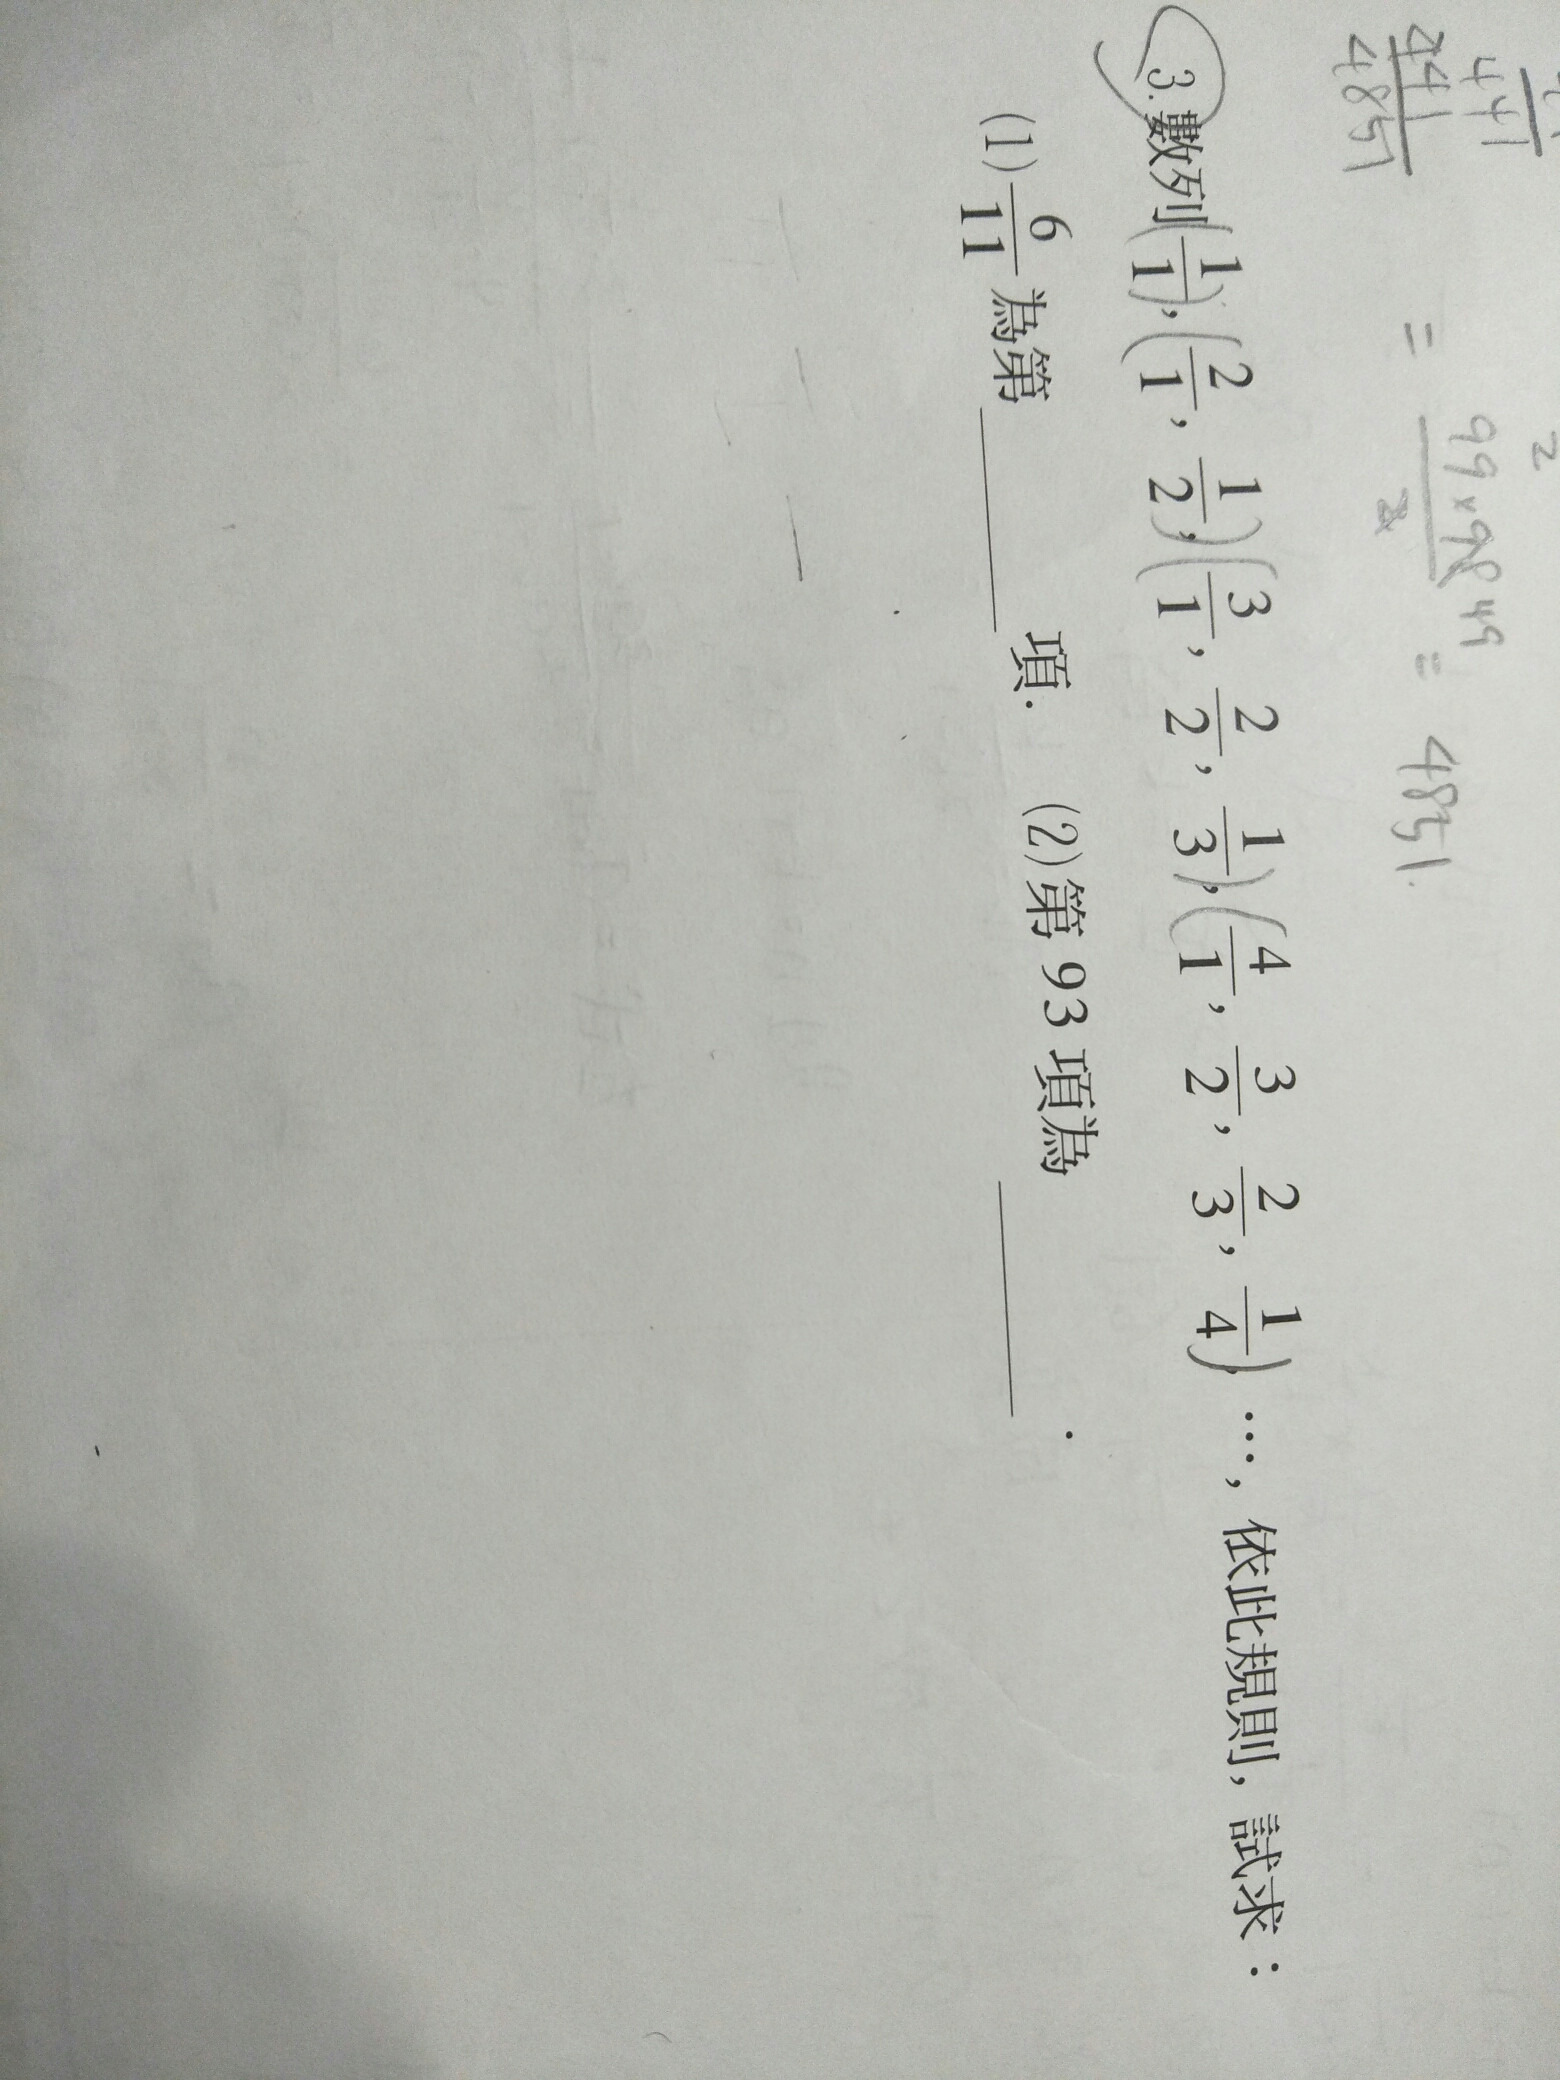 441
441
4851
= 99×98 49 / 2 = 4851.
3. 數列 (1/1), (2/1, 1/2), (3/1, 2/2, 1/3), (4/1, 3/2, 2/3, 1/4), …, 依此規則, 試求：
(1) 6/11 為第______項. (2) 第 93 項為______.